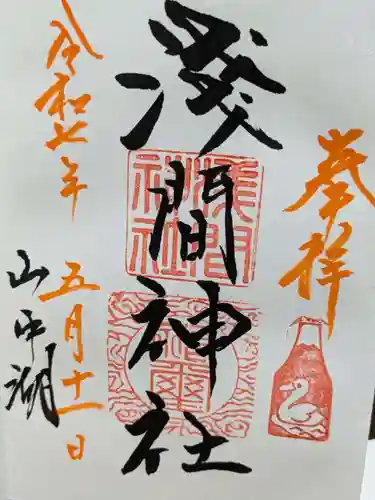 奉拝
淺間神社
淺間神社
山中湖
令和七年
五月十一日